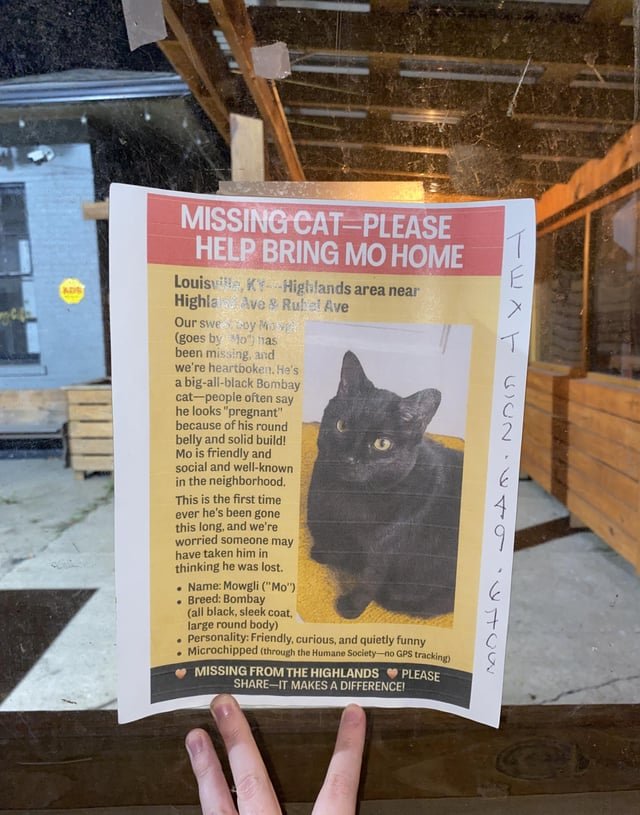 MISSING CAT—PLEASE
HELP BRING MO HOME
Louisville, KY—Highlands area near
Highland Ave & Rubel Ave
Our sweet boy Mowgli
(goes by "Mo") has
been missing, and
we're heartboken. He's
a big-all-black Bombay
cat—people often say
he looks "pregnant"
because of his round
belly and solid build!
Mo is friendly and
social and well-known
in the neighborhood.
This is the first time
ever he's been gone
this long, and we're
worried someone may
have taken him in
thinking he was lost.
• Name: Mowgli ("Mo")
• Breed: Bombay
(all black, sleek coat,
large round body)
• Personality: Friendly, curious, and quietly funny
• Microchipped (through the Humane Society—no GPS tracking)
MISSING FROM THE HIGHLANDS PLEASE
SHARE—IT MAKES A DIFFERENCE!
TEXT 502.649.6703
ADS